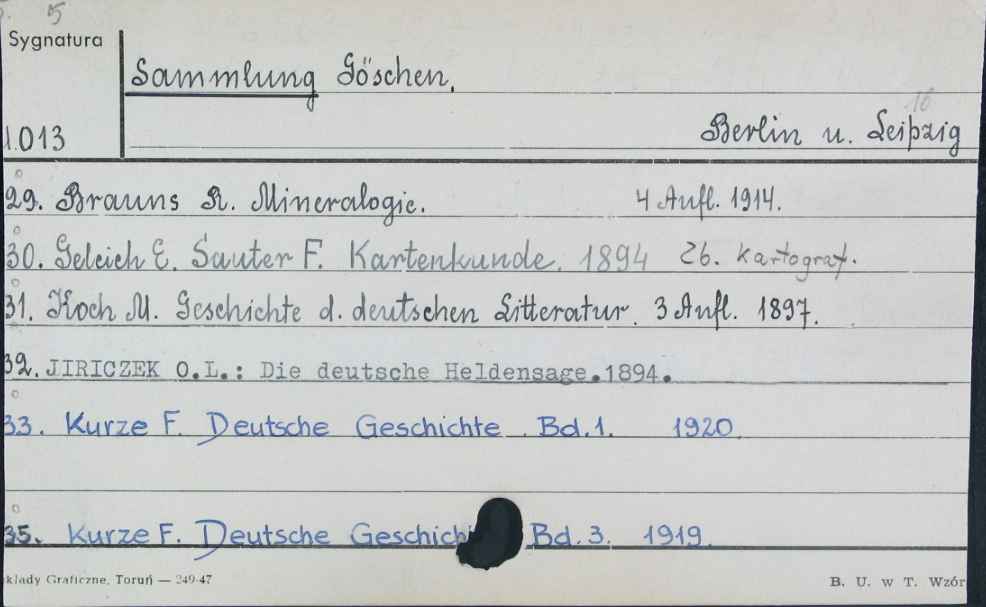 5
Sygnatura
Sammlung Göschen.
16
1.013
Berlin u. Leipzig
29. Brauns R. Mineralogie. 4 Aufl. 1914.
30. Geleich E. Sauter F. Kartenkunde. 1894 Zb. Kartograf.
31. Koch M. Geschichte d. deutschen Litteratur. 3 Aufl. 1897.
32. JIRICZEK O.L.: Die deutsche Heldensage.1894.
33. Kurze F. Deutsche Geschichte. Bd.1. 1920
35. Kurze F. Deutsche Bd. 3. 1919.
Graficzne, Toruń — 249-47
B. U. w T. Wzór